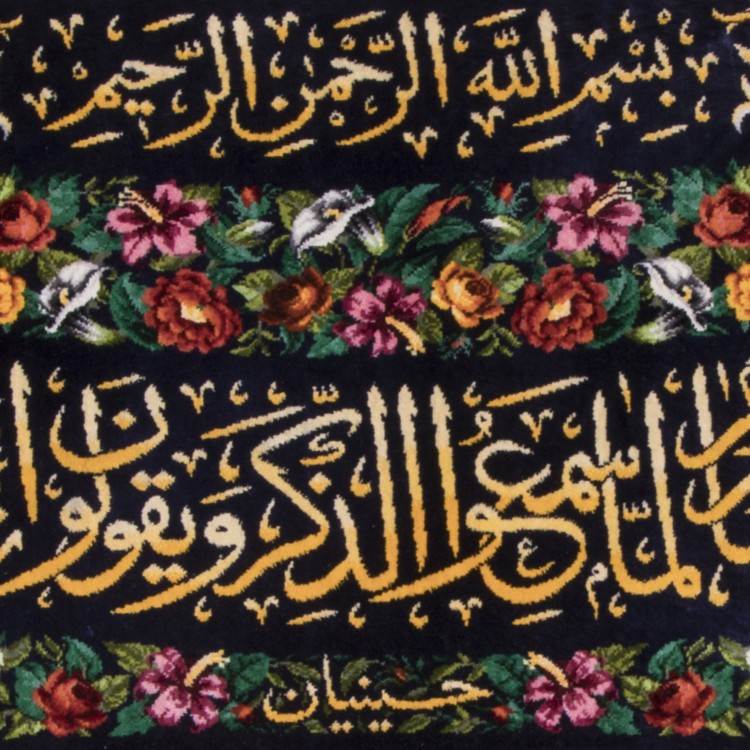 بِسْمِ اللَّهِ الرَّحْمَٰنِ الرَّحِيمِ
لَمَّا سَمِعُوا الذِّكْرَ وَيَقُولُونَ
حسینیان